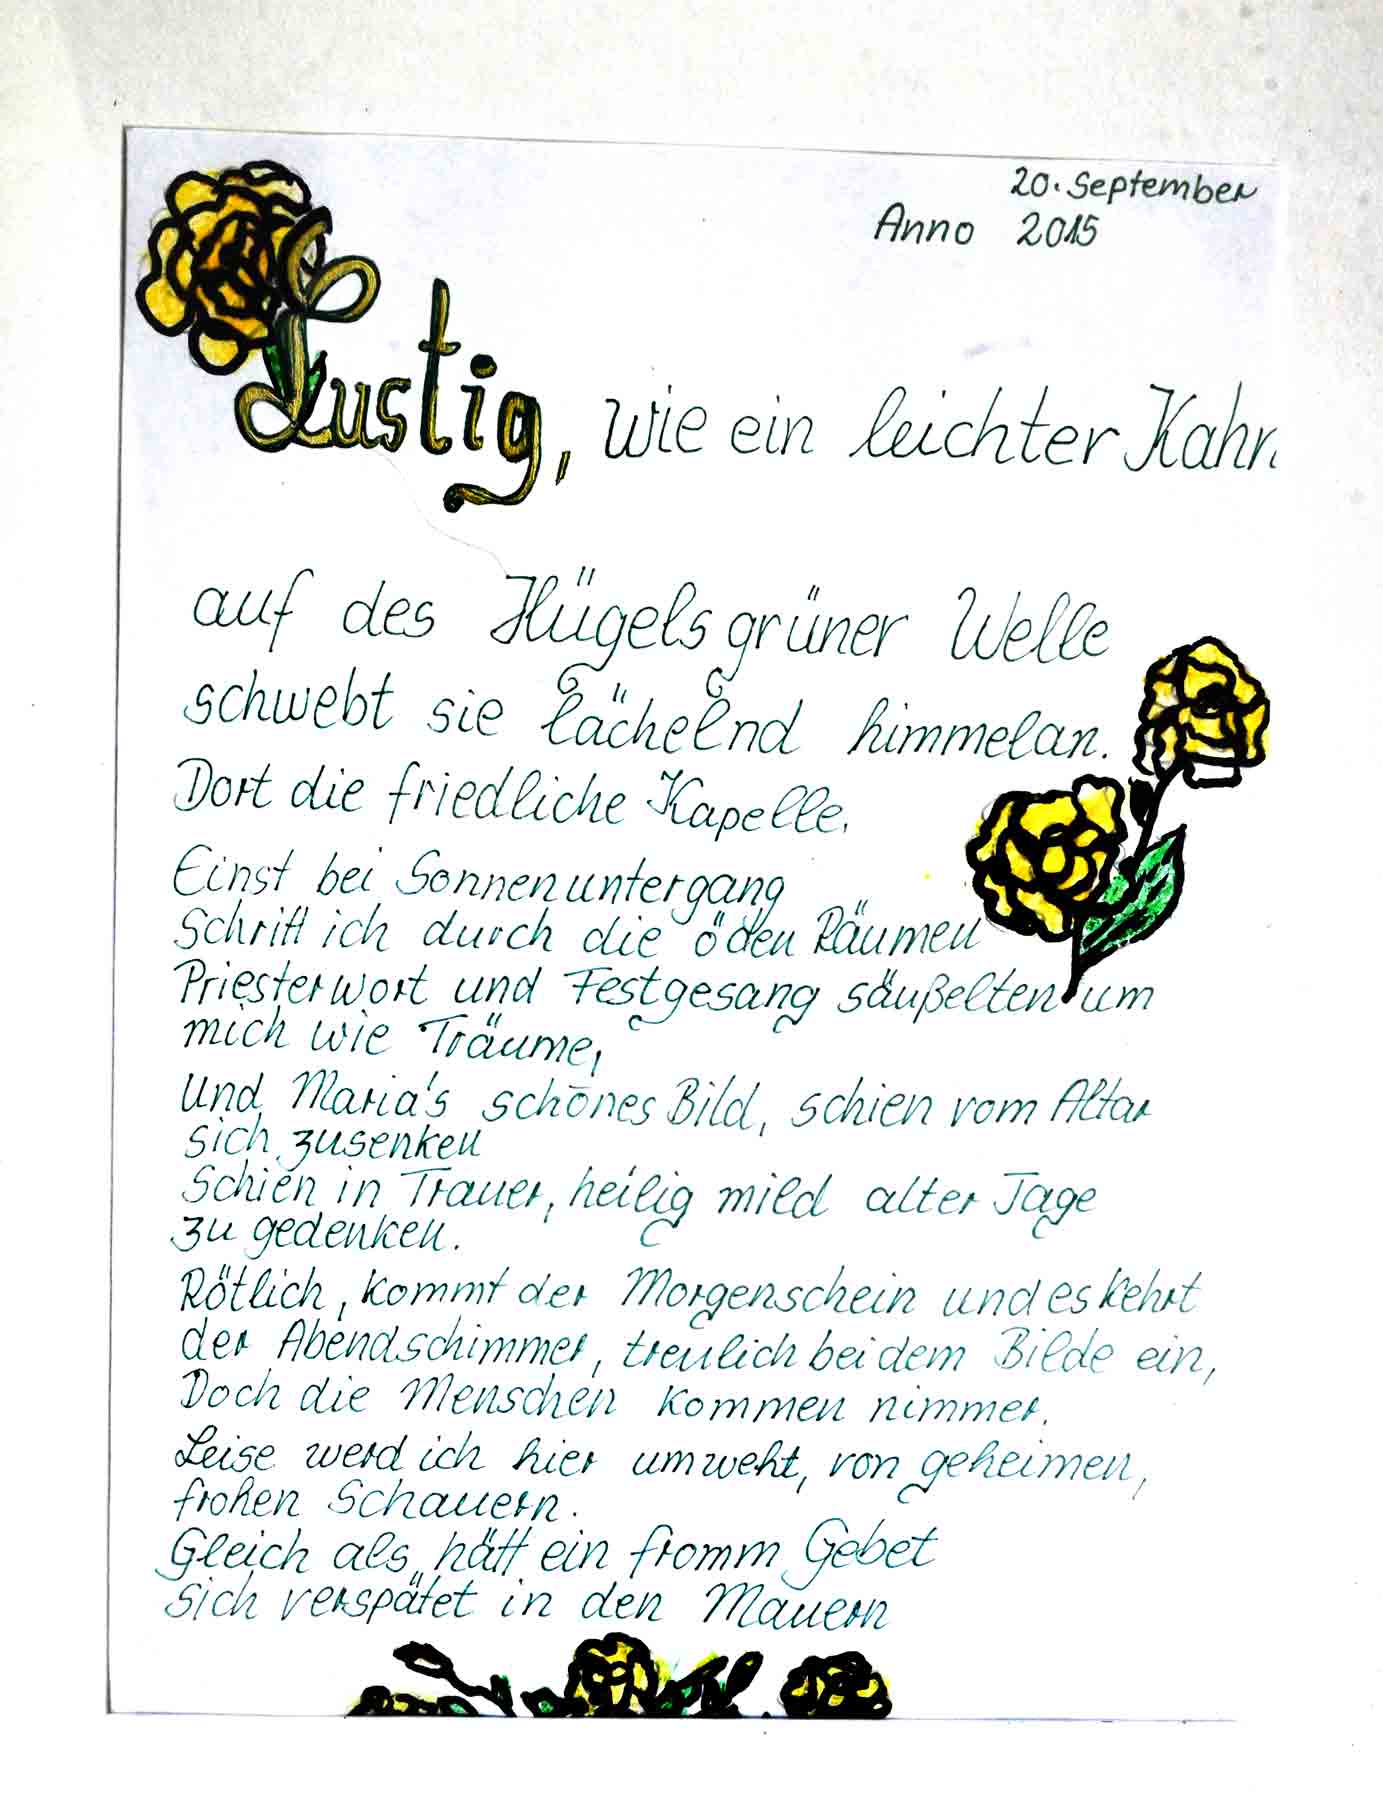 20. September
Anno 2015
Lustig, wie ein leichter Kahn
auf des Hügels grüner Welle
schwebt sie lächelnd himmelan.
Dort die friedliche Kapelle.
Einst bei Sonnenuntergang
Schritt ich durch die öden Räumen
Priesterwort und Festgesang säußelten um
mich wie Träume,
Und Maria's schönes Bild, schien vom Altar
sich zusenken
Schien in Trauer, heilig mild alter Tage
zu gedenken.
Rötlich, kommt der Morgenschein und es kehrt
der Abendschimmer, treulich bei dem Bilde ein,
Doch die Menschen kommen nimmer.
Leise werd ich hier umweht, von geheimen,
frohen Schauern.
Gleich als hätt ein fromm Gebet
sich verspätet in den Mauern